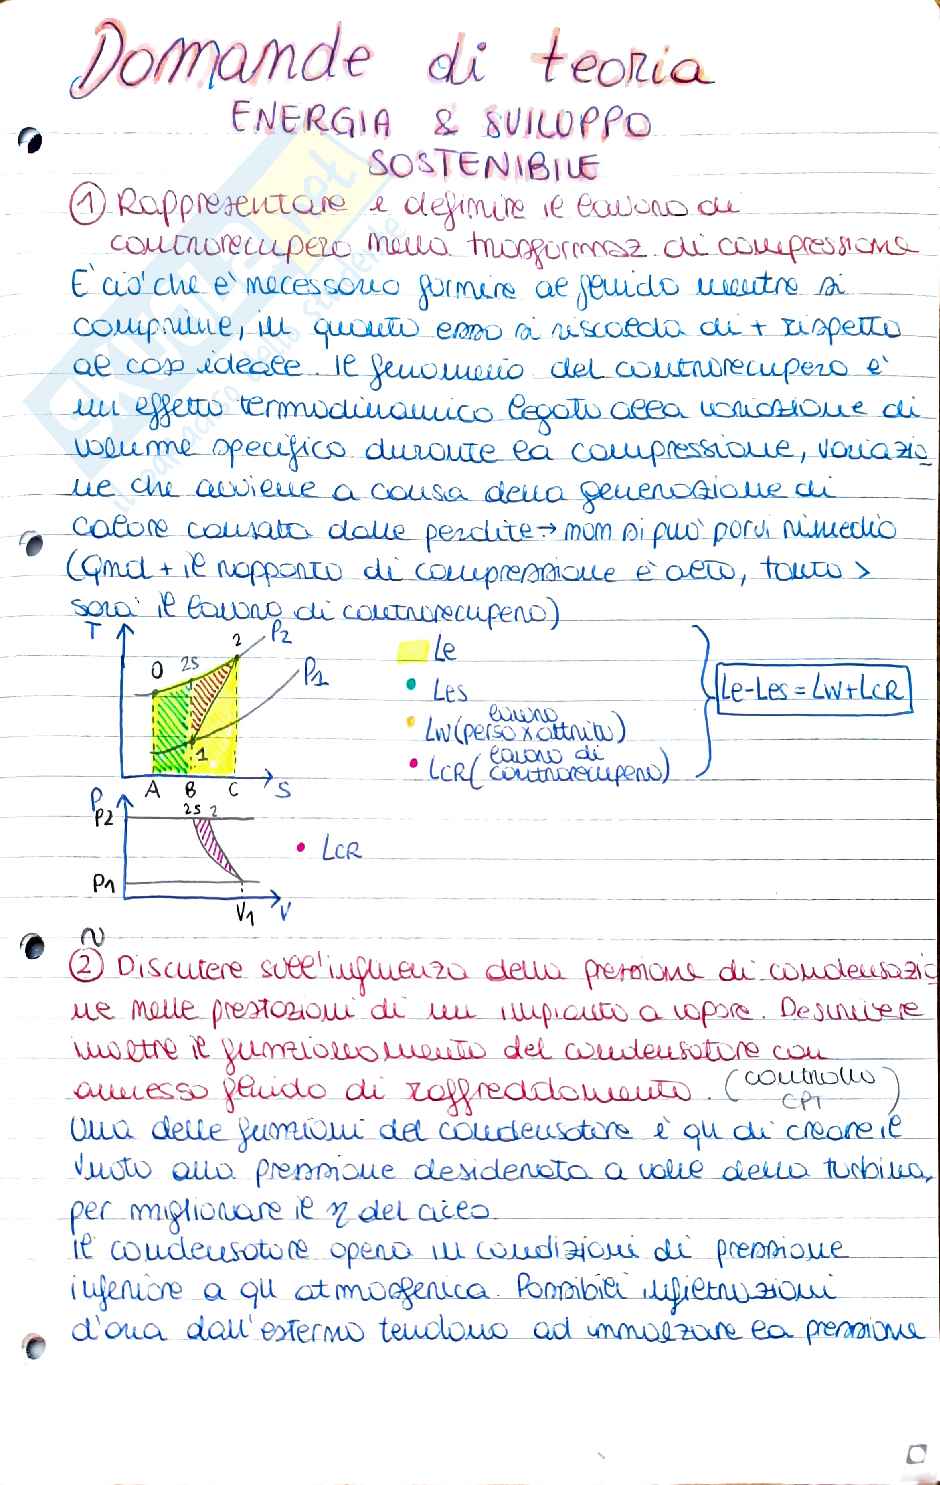 Domande di teoria
ENERGIA & SVILUPPO
SOSTENIBILE
① Rappresentare e definire il lavoro di
controrecupero nella trasformaz. di compressione
E' ciò che è necessario fornire al fluido mentre si
comprime, in quanto esso si riscalda di + rispetto
al caso ideale. Il fenomeno del controrecupero è
un effetto termodinamico legato alla variazione di
volume specifico durante la compressione, variazio
ne che avviene a causa della generazione di
calore causata dalle perdite → non si può porvi rimedio
(Qnd + il rapporto di compressione è alto, tanto >
sarà il lavoro di controrecupero)
T 0 2S 2 P2 P1 1 A B C S
Le
Les
Lw (lavoro perso x attrito)
LCR (lavoro di controrecupero)
Le-Les = Lw + LCR
P P2 2S 2 P1 V1 V
LCR
② Discutere sull'influenza della pressione di condensazio
ne nelle prestazioni di un impianto a vapore. Descrivere
inoltre il funzionamento del condensatore con
annesso fluido di raffreddamento. (controllo CPI)
Una delle funzioni del condensatore è qll di creare il
vuoto alla pressione desiderata a valle della turbina,
per migliorare il η del ciclo.
Il condensatore opera in condizioni di pressione
inferiore a qll atmosferica. Possibili infiltrazioni
d'aria dall'esterno tendono ad innalzare la pressione